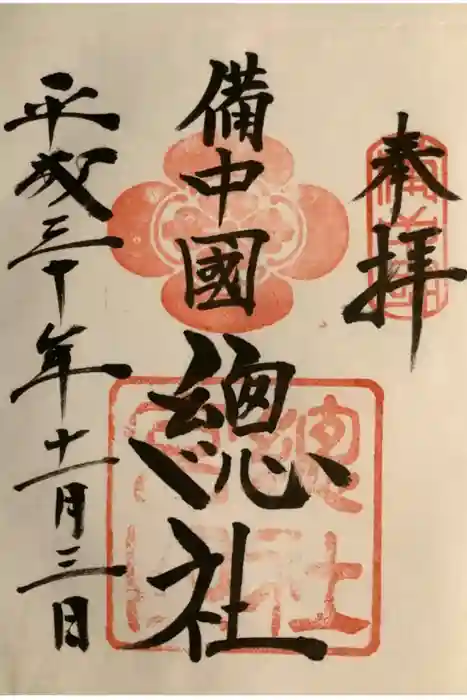 奉拝
備中國
總社
平成三十年十一月三日